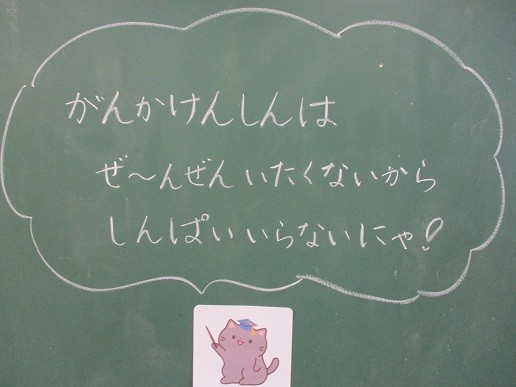 がんかけんしんは
ぜ〜んぜんいたくないから
しんぱいいらないにゃ!